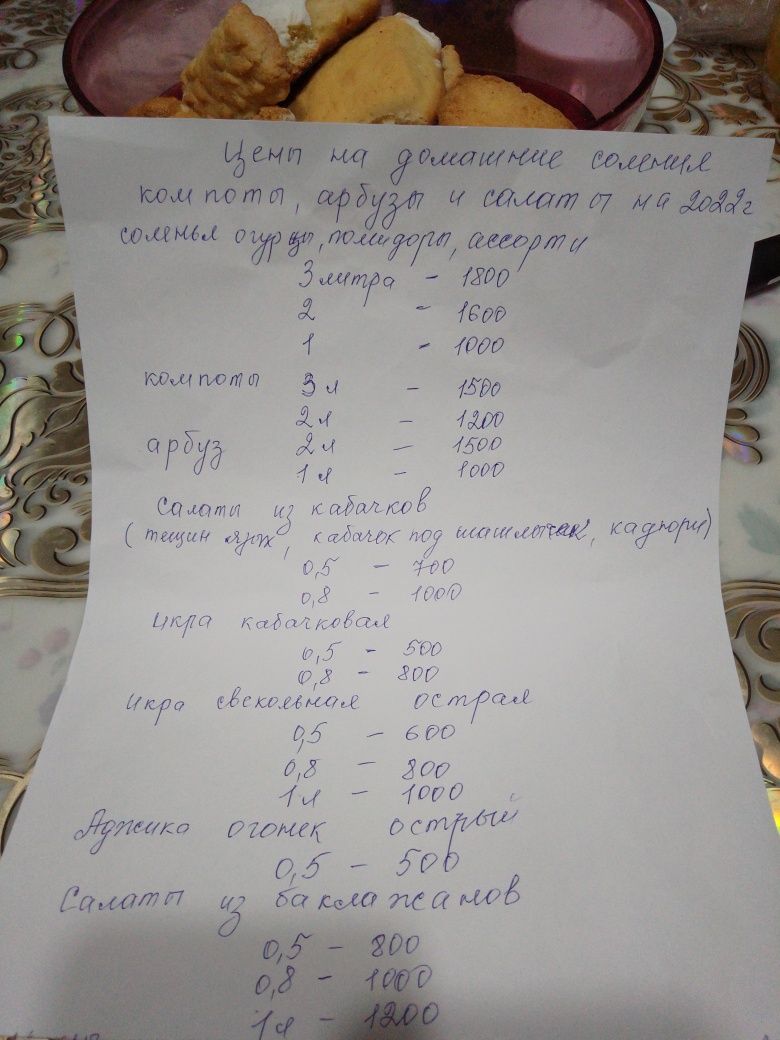 Цены на домашние соления
компоты, арбузы и салаты на 2022г
соленья огурцы, помидоры, ассорти
3 литра - 1800
2 - 1600
1 - 1000
компоты 3л - 1500
2л - 1200
арбуз 2л - 1500
1л - 1000
Салаты из кабачков
(тещин язык, кабачок под шашлычок, кадпори)
0,5 - 700
0,8 - 1000
Икра кабачковая
0,5 - 500
0,8 - 800
Икра свекольная острая
0,5 - 600
0,8 - 800
1л - 1000
Аджика огонек острый
0,5 - 500
Салаты из баклажанов
0,5 - 800
0,8 - 1000
1л - 1200